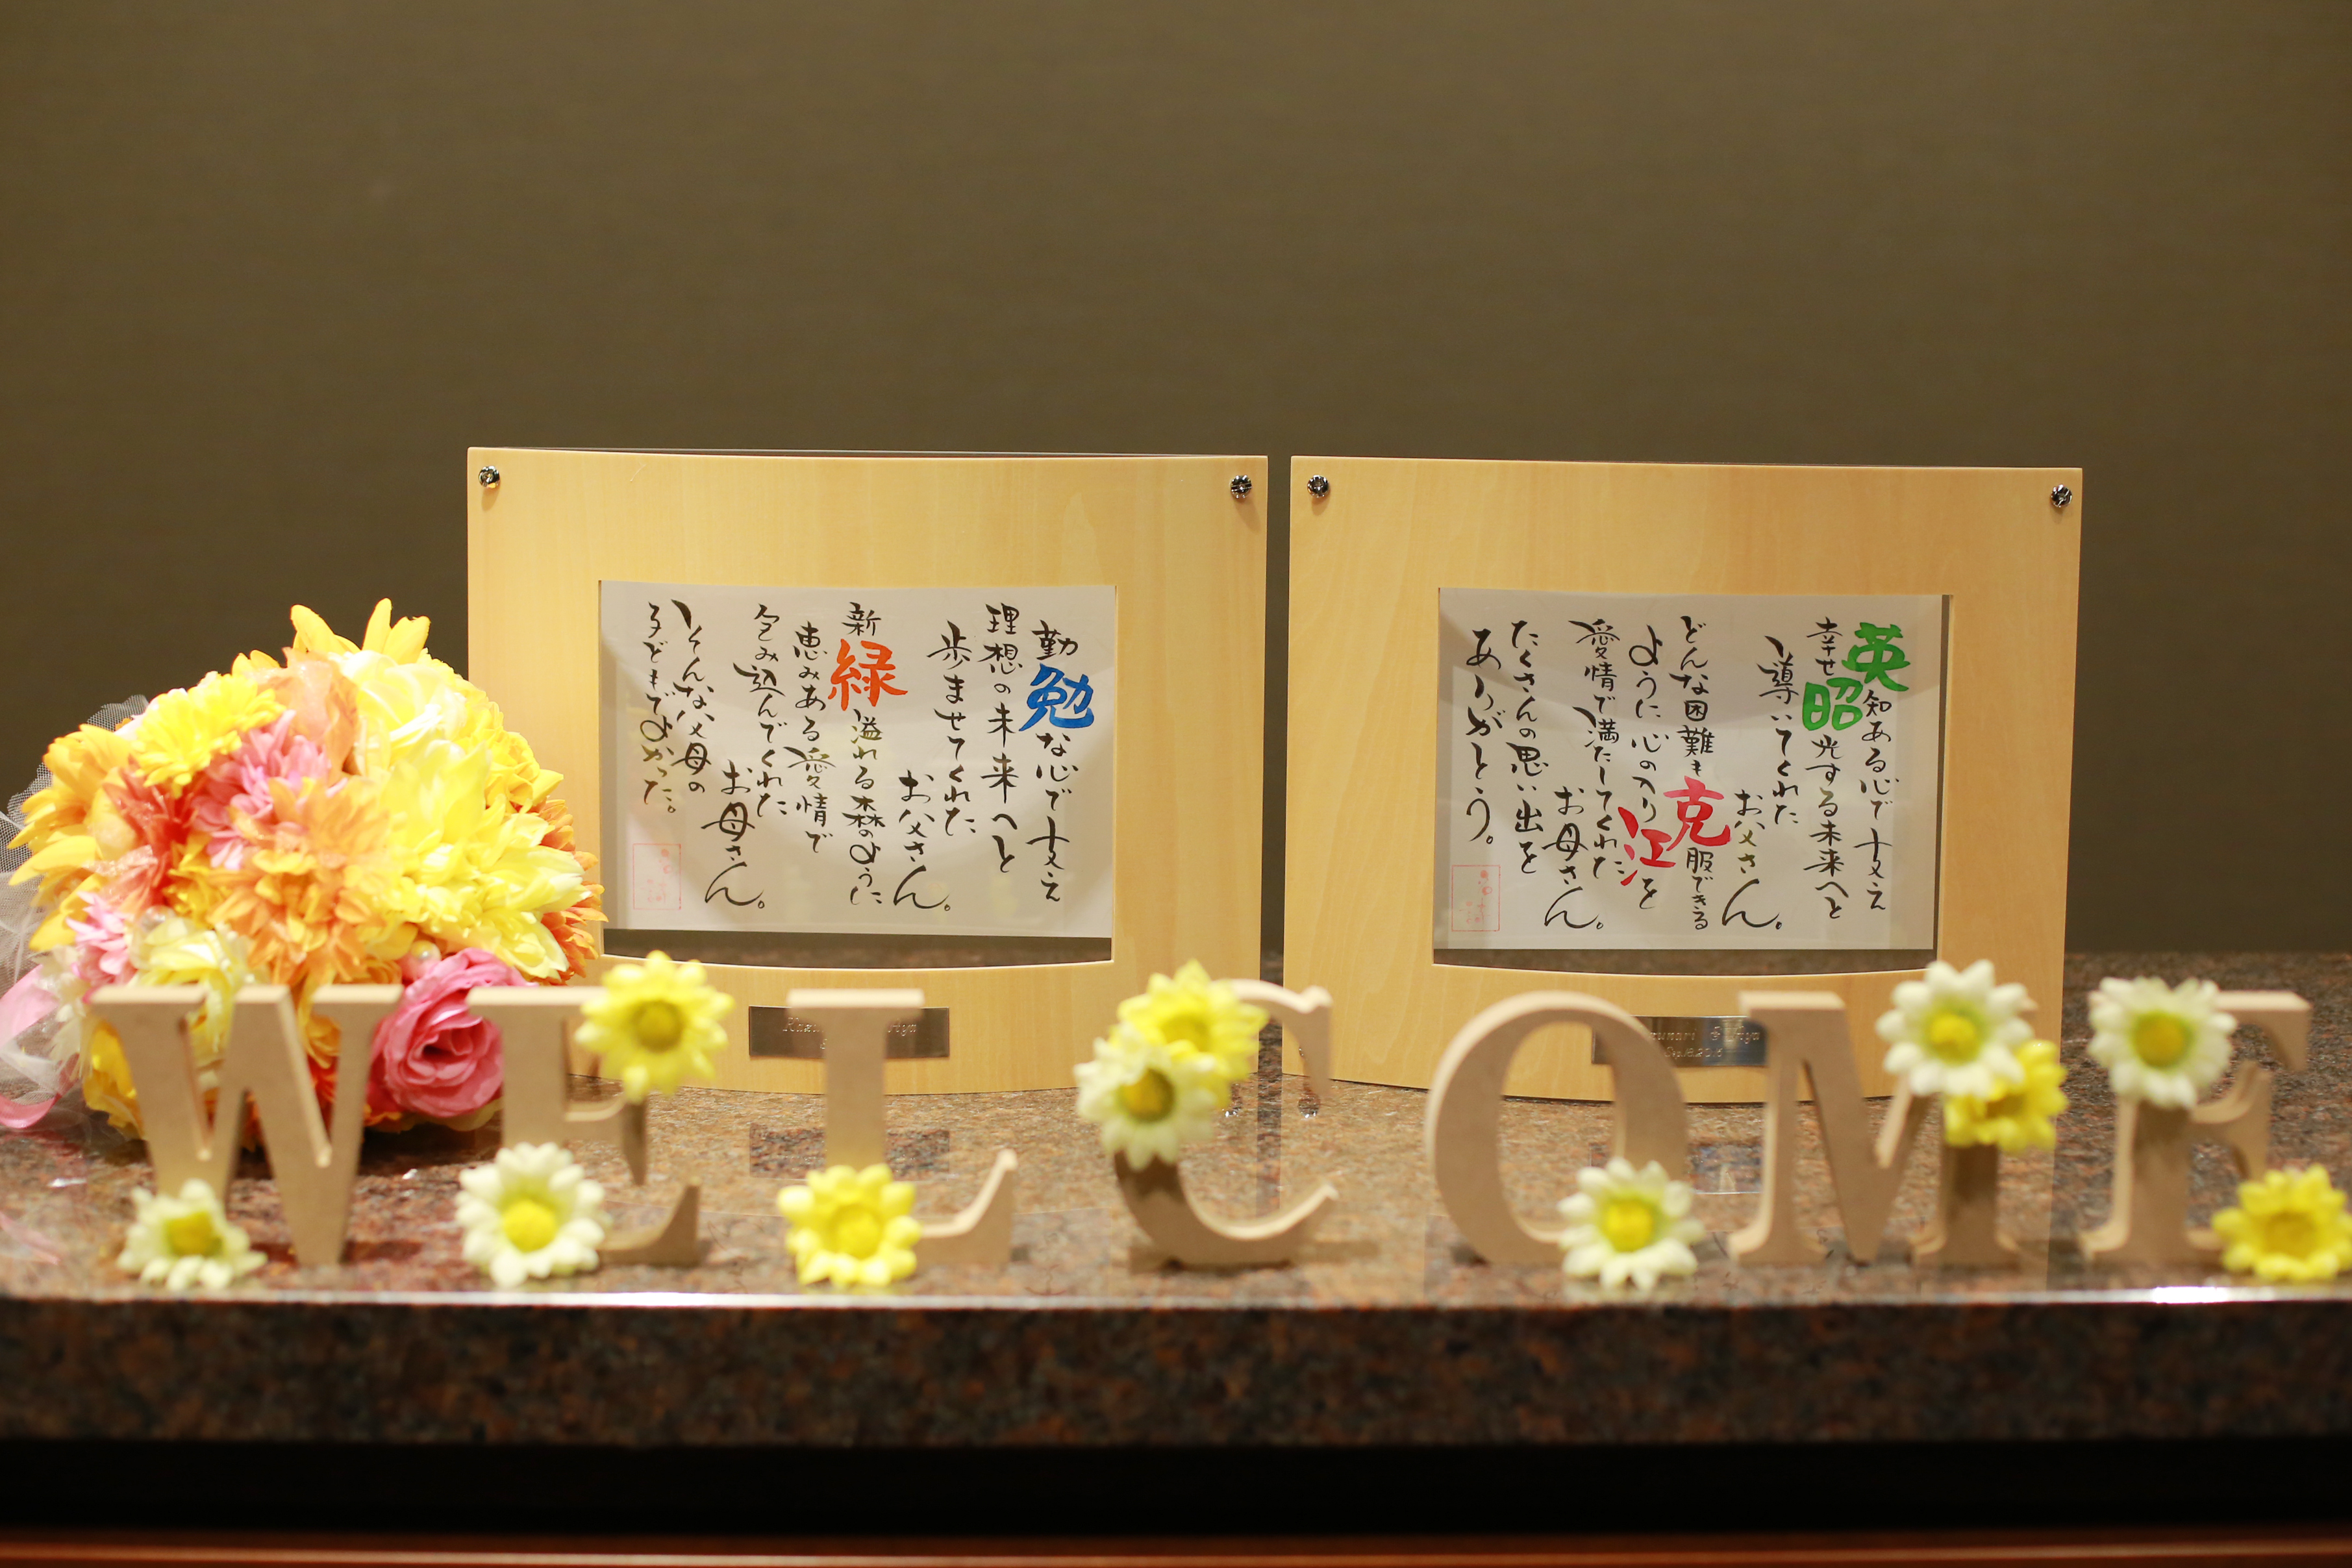 勤勉な心で支え
理想の未来へと
歩ませてくれた
お父さん。
新緑溢れる森のように
恵みある愛情で
包み込んでくれた
お母さん。
そんな父母の
子どもでよかった。
英知ある心で支え
幸せ昭光する未来へと
導いてくれた
お父さん。
どんな困難も克服できる
ように心の入り江を
愛情で満たしてくれた
お母さん。
たくさんの思い出を
ありがとう。
WELCOME